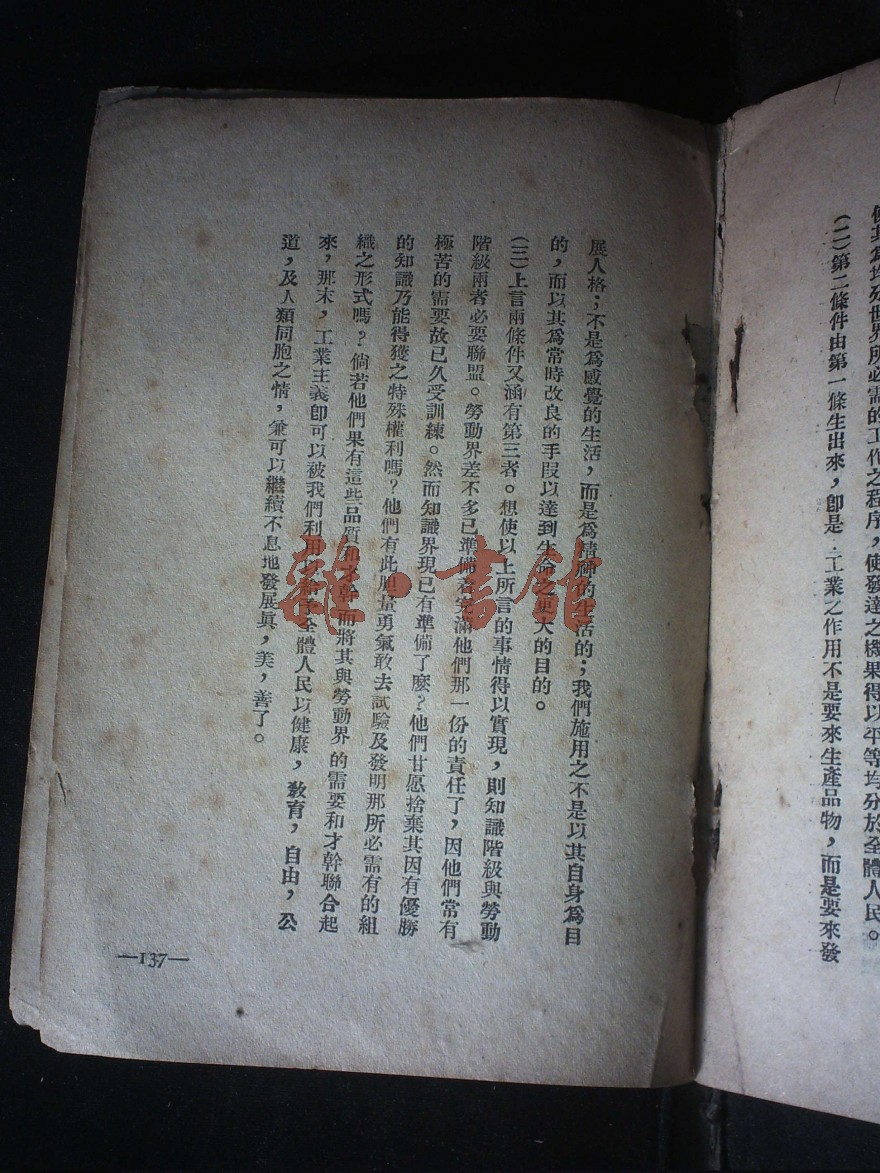 使其爲均殄世界所必需的工作之程序，使發達之機果得以平等均分於全體人民。
(二)第二條件由第一條生出來，卽是·工業之作用不是要來生產品物，而是要來發
展人格；不是爲感覺的生活，而是爲精神的生活的；我們施用之不是以其自身爲目
的，而以其爲常時改良的手段以達到生命之更大的目的。
(三)上言兩條件又涵有第三者。想使以上所言的事情得以實現，則知識階級與勞動
階級兩者必要聯盟。勞動界差不多已準備着充滿他們那一份的責任了，因他們常有
極苦的需要故已久受訓練。然而知識界現已有準備了麽？他們甘愿捨棄其因有優勝
的知識乃能得獲之特殊權利嗎？他們有此胆量勇氣敢去試驗及發明那所必需有的組
織之形式嗎？倘若他們果有這些品質和才幹而將其與勞動界的需要和才幹聯合起
來，那末，工業主義卽可以被我們利用以給予全體人民以健康，敎育，自由，公
道，及人類同胞之情，兼可以繼續不息地發展眞，美，善了。
—137—
雜·書館